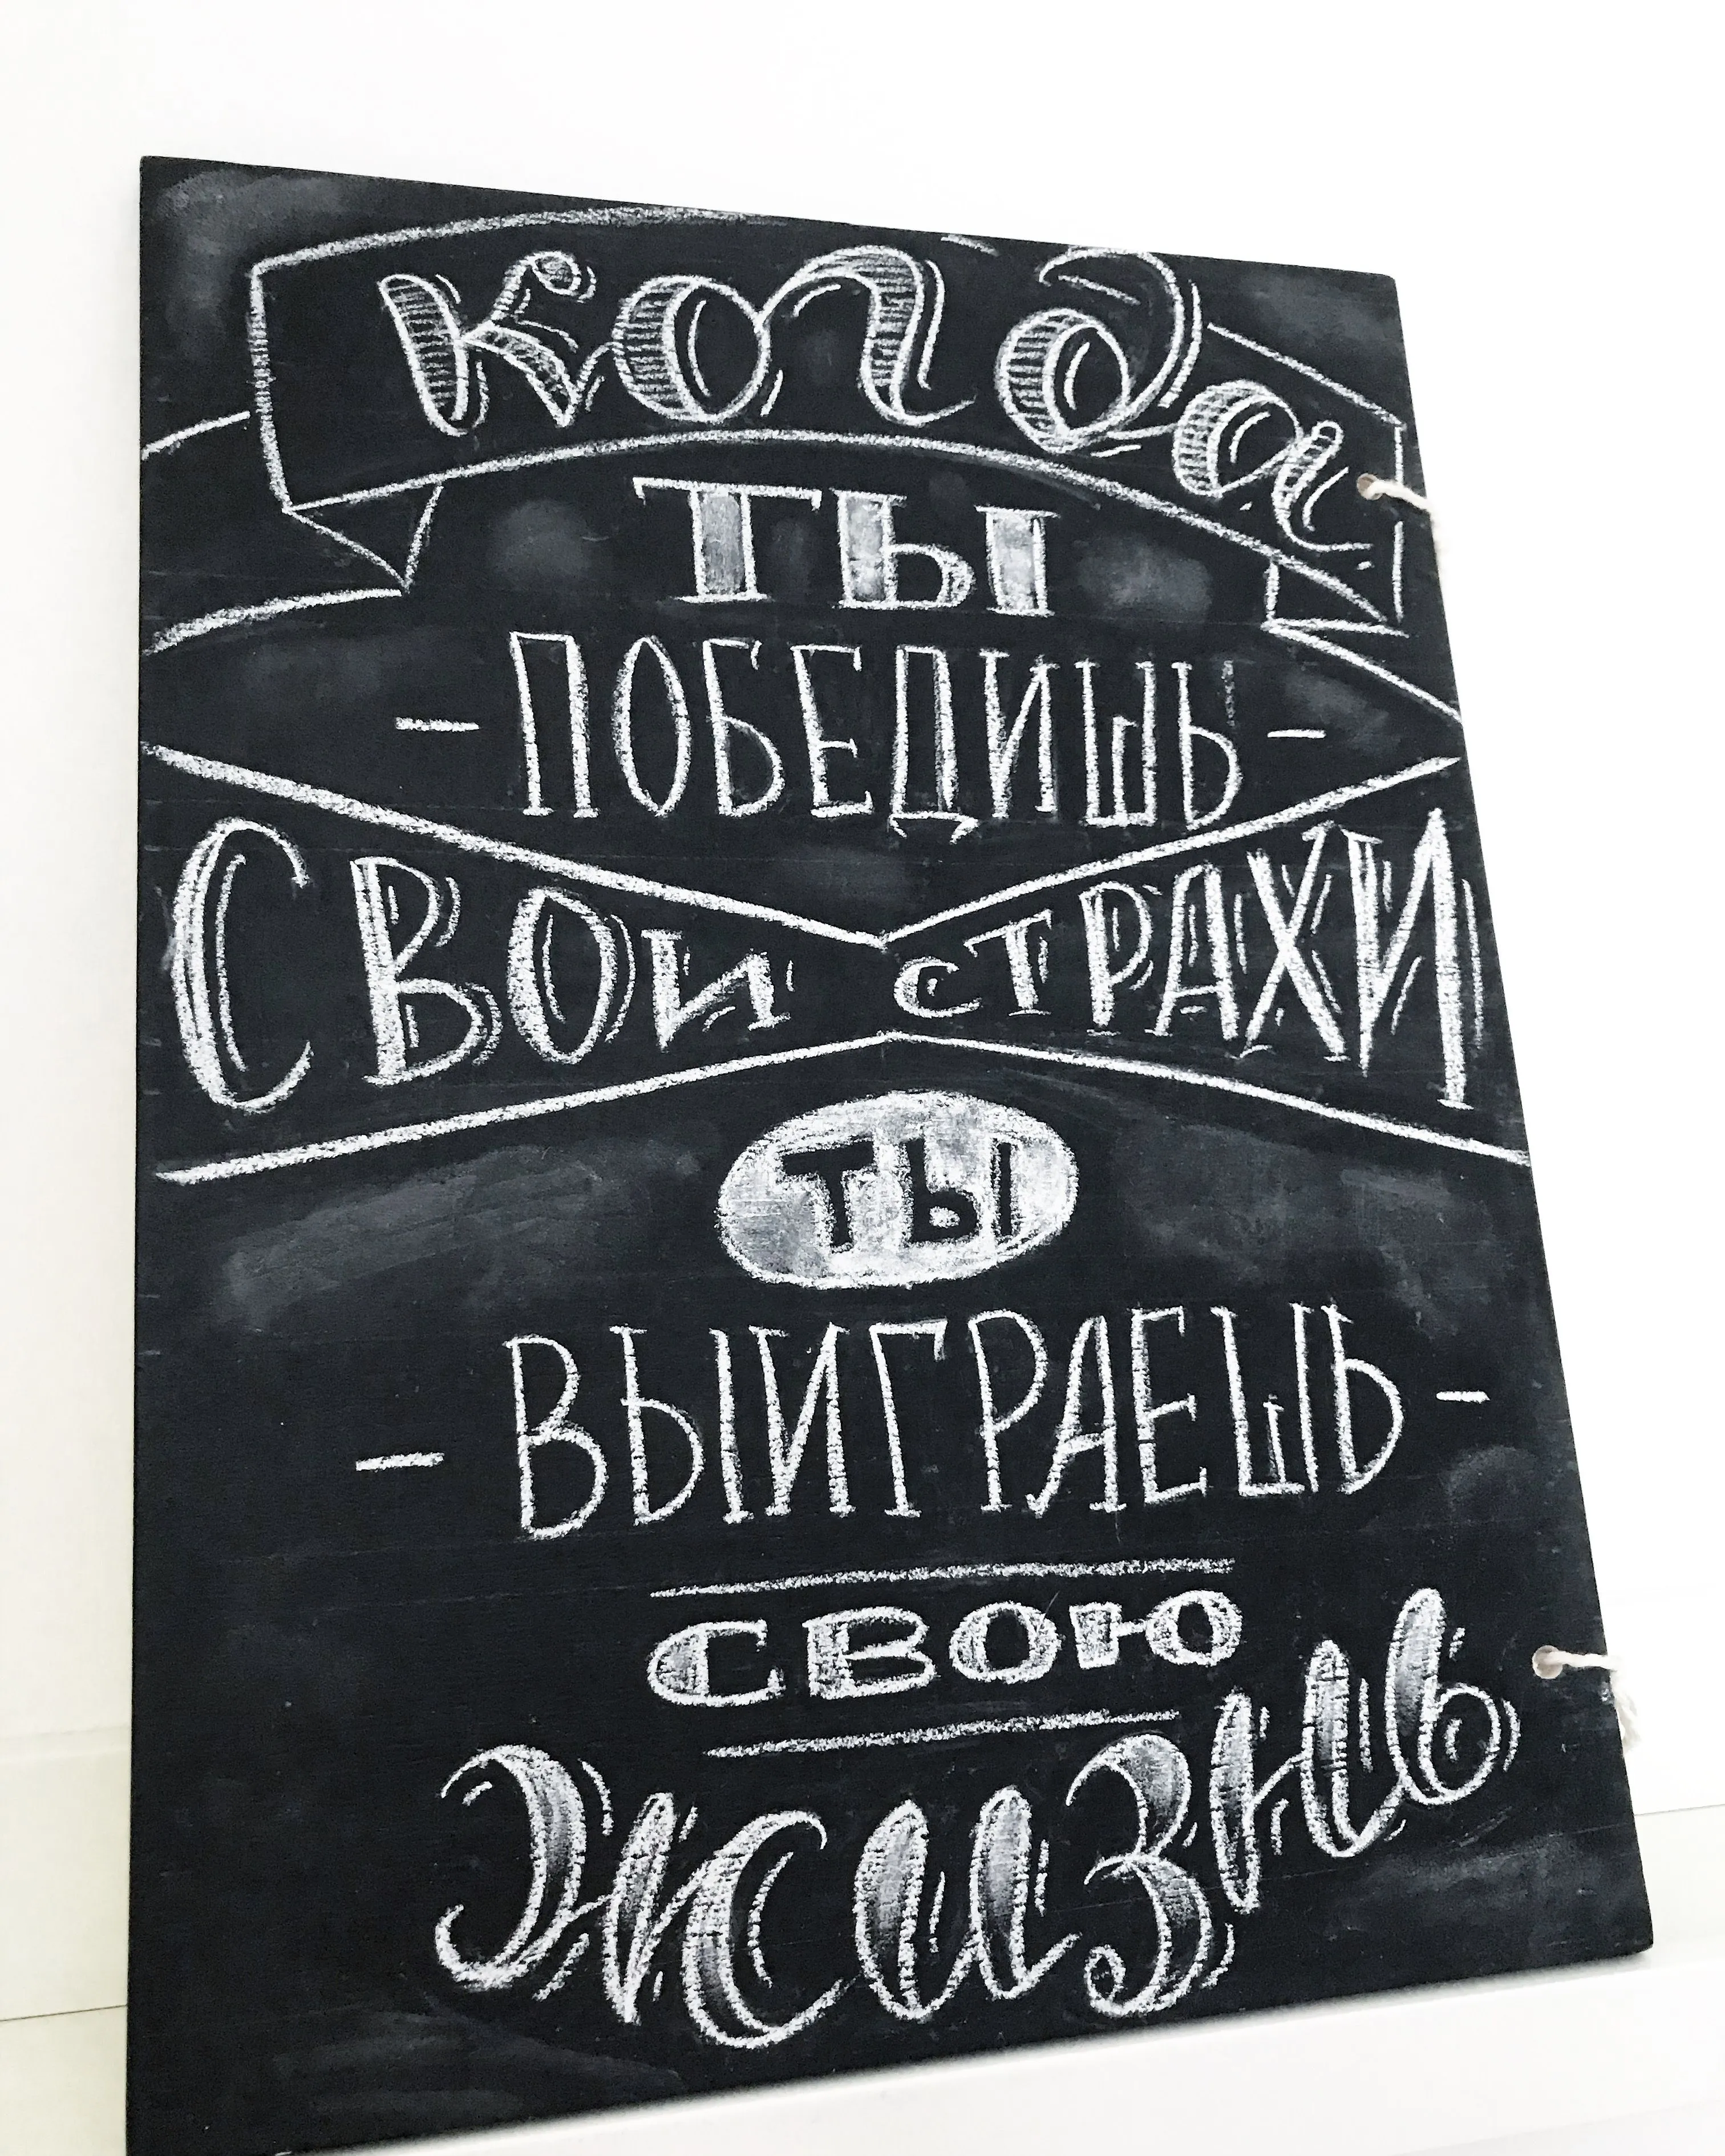 когда
ТЫ
- ПОБЕДИШЬ -
СВОИ СТРАХИ
ТЫ
- ВЫИГРАЕШЬ -
СВОЮ
жизнь